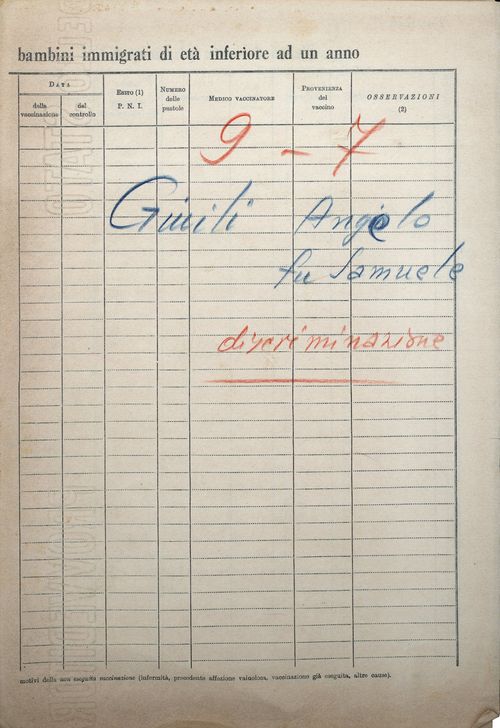 bambini immigrati di età inferiore ad un anno
DATA
della vaccinazione
del controllo
ESITO (1)
P. N. I.
NUMERO
delle
pustole
MEDICO VACCINATORE
PROVENIENZA
del
vaccino
OSSERVAZIONI
(2)
9 - 7
Giuili Angelo
fu Samuele
discriminazione
motivi della non eseguita vaccinazione (infermità, precedente affezione vaiuolosa, vaccinazione già eseguita, altre cause).